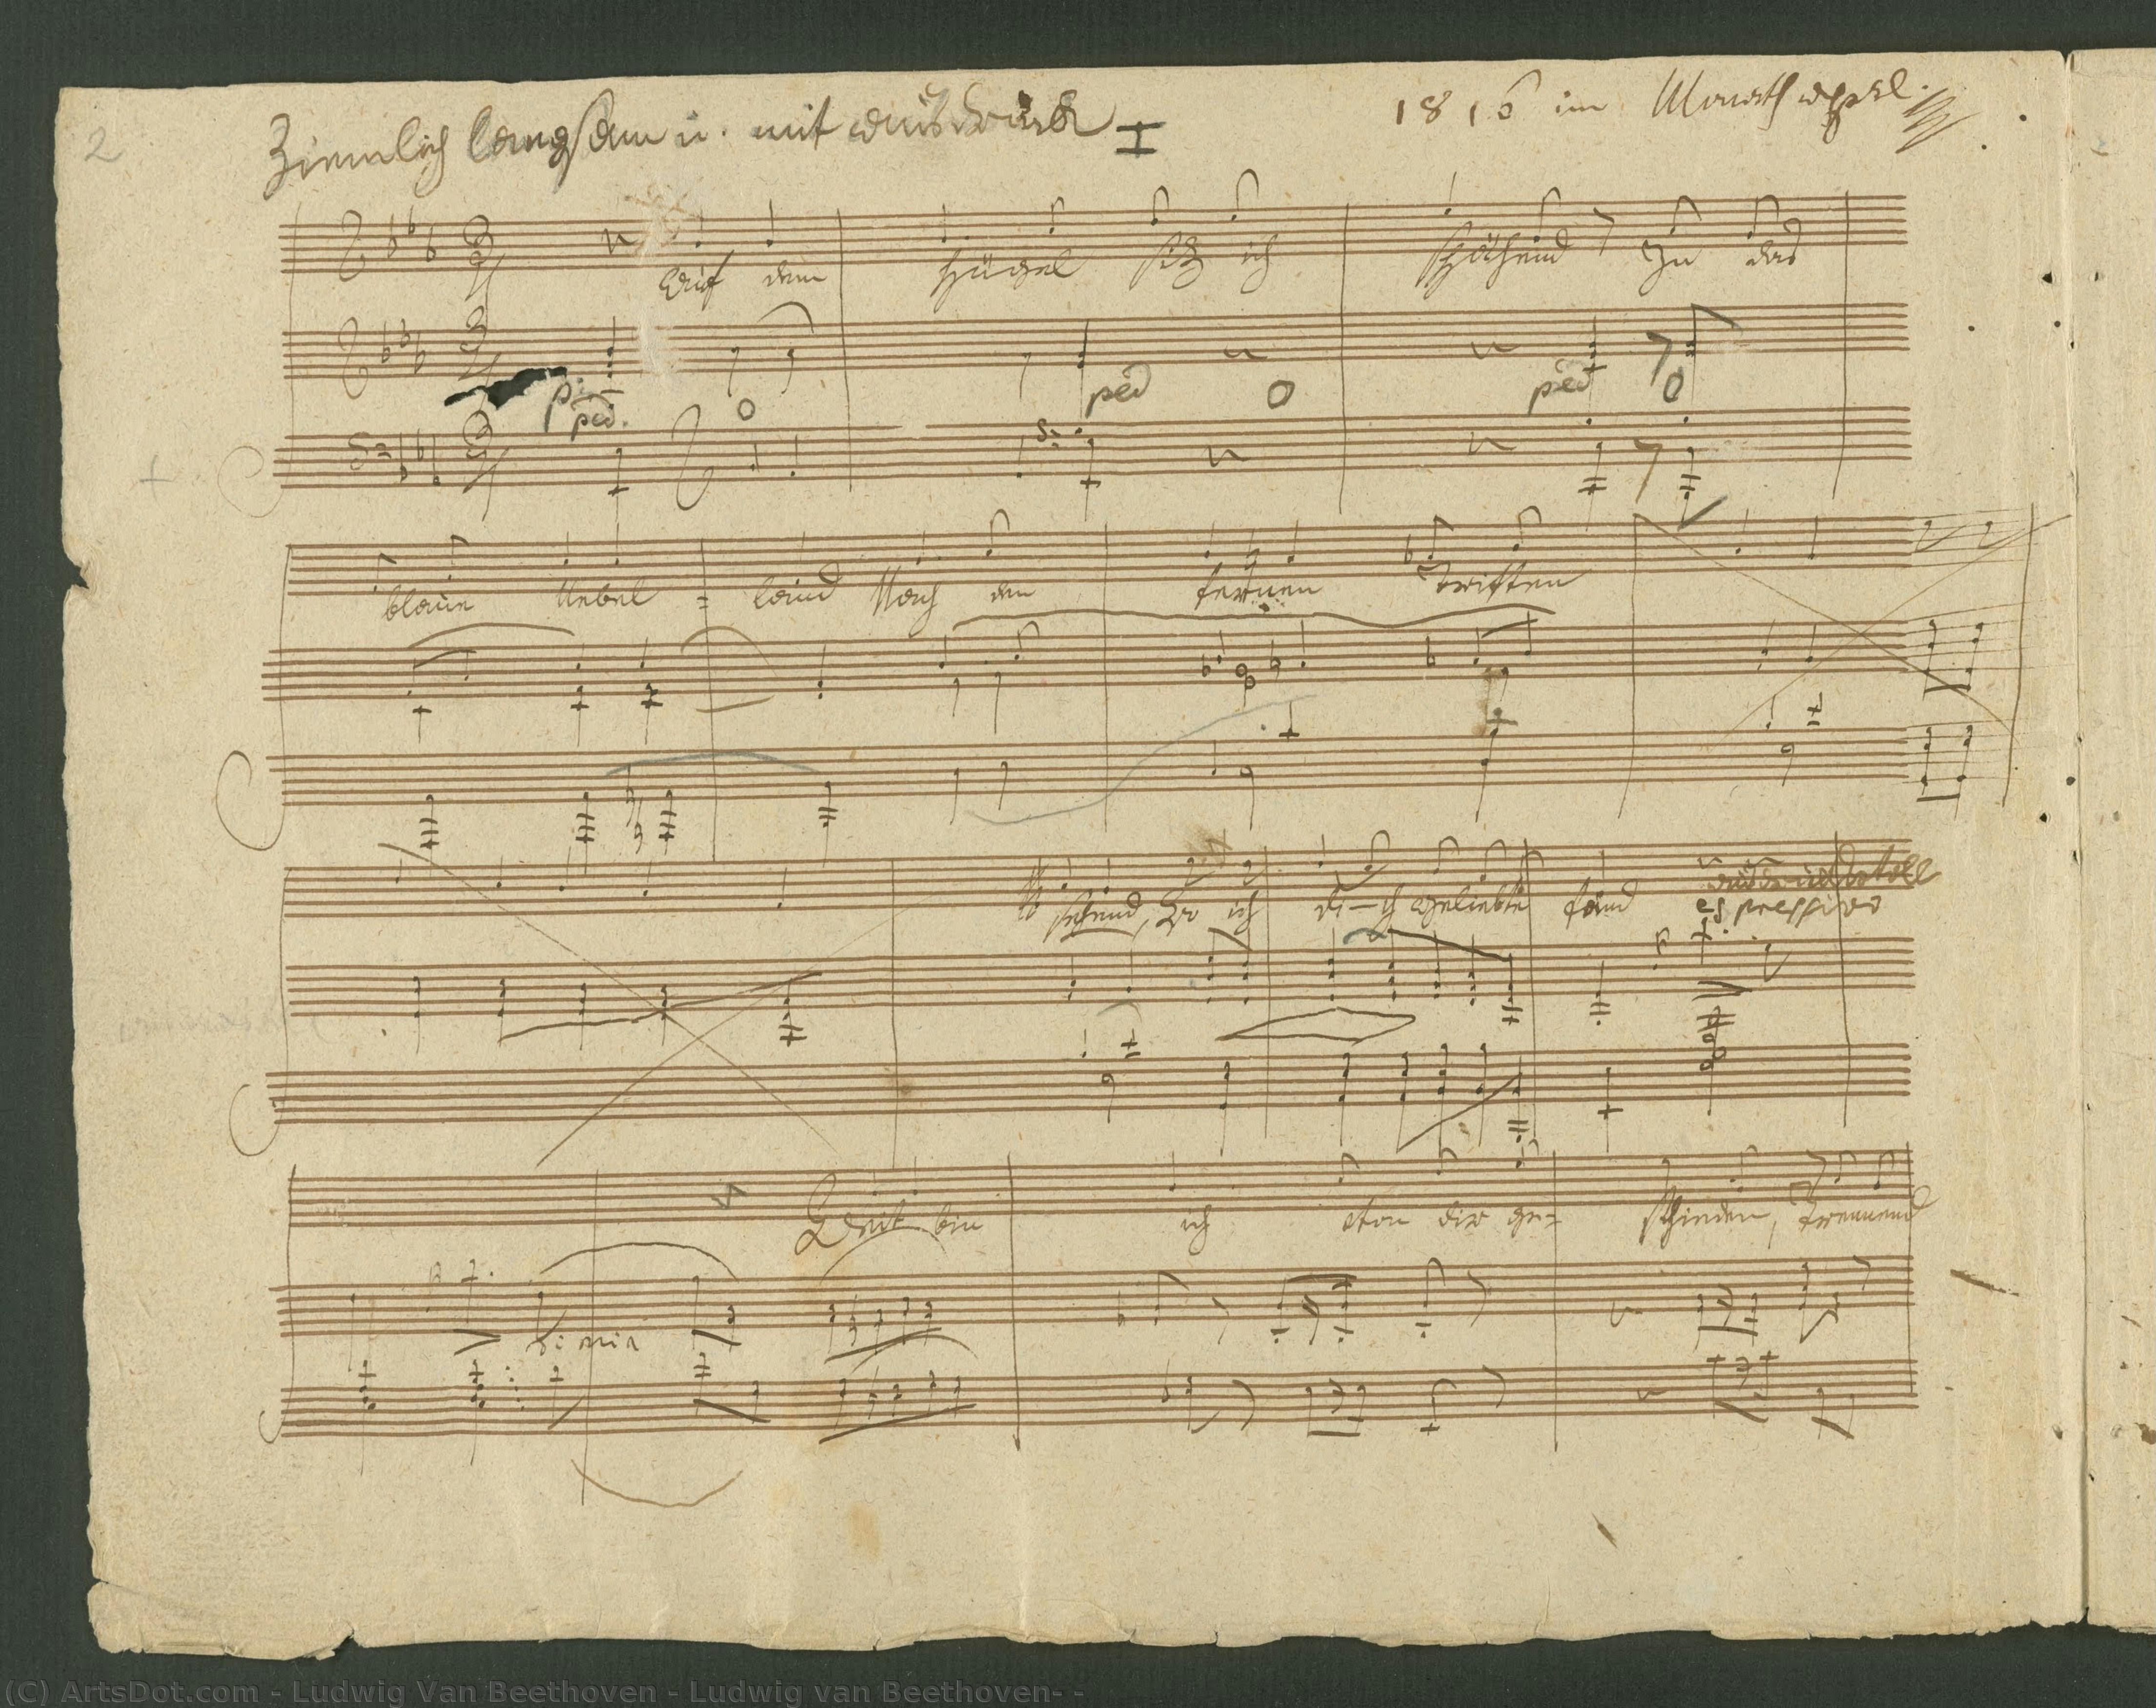 2
Ziemlich langsam u. mit ausdruck
I
1816 im Monath april.
Auf dem Hügel siz ich spähend In das
p:
ped. O ped O ped O
blaue Nebel = land Nach den fernen Triften
sehend, Wo ich di-ch geliebte fand
ausdrucksvoll
espressivo
Weit bin ich von dir ge= schieden, Trennend
(C) ArtsDot.com - Ludwig Van Beethoven - Ludwig van Beethoven- -